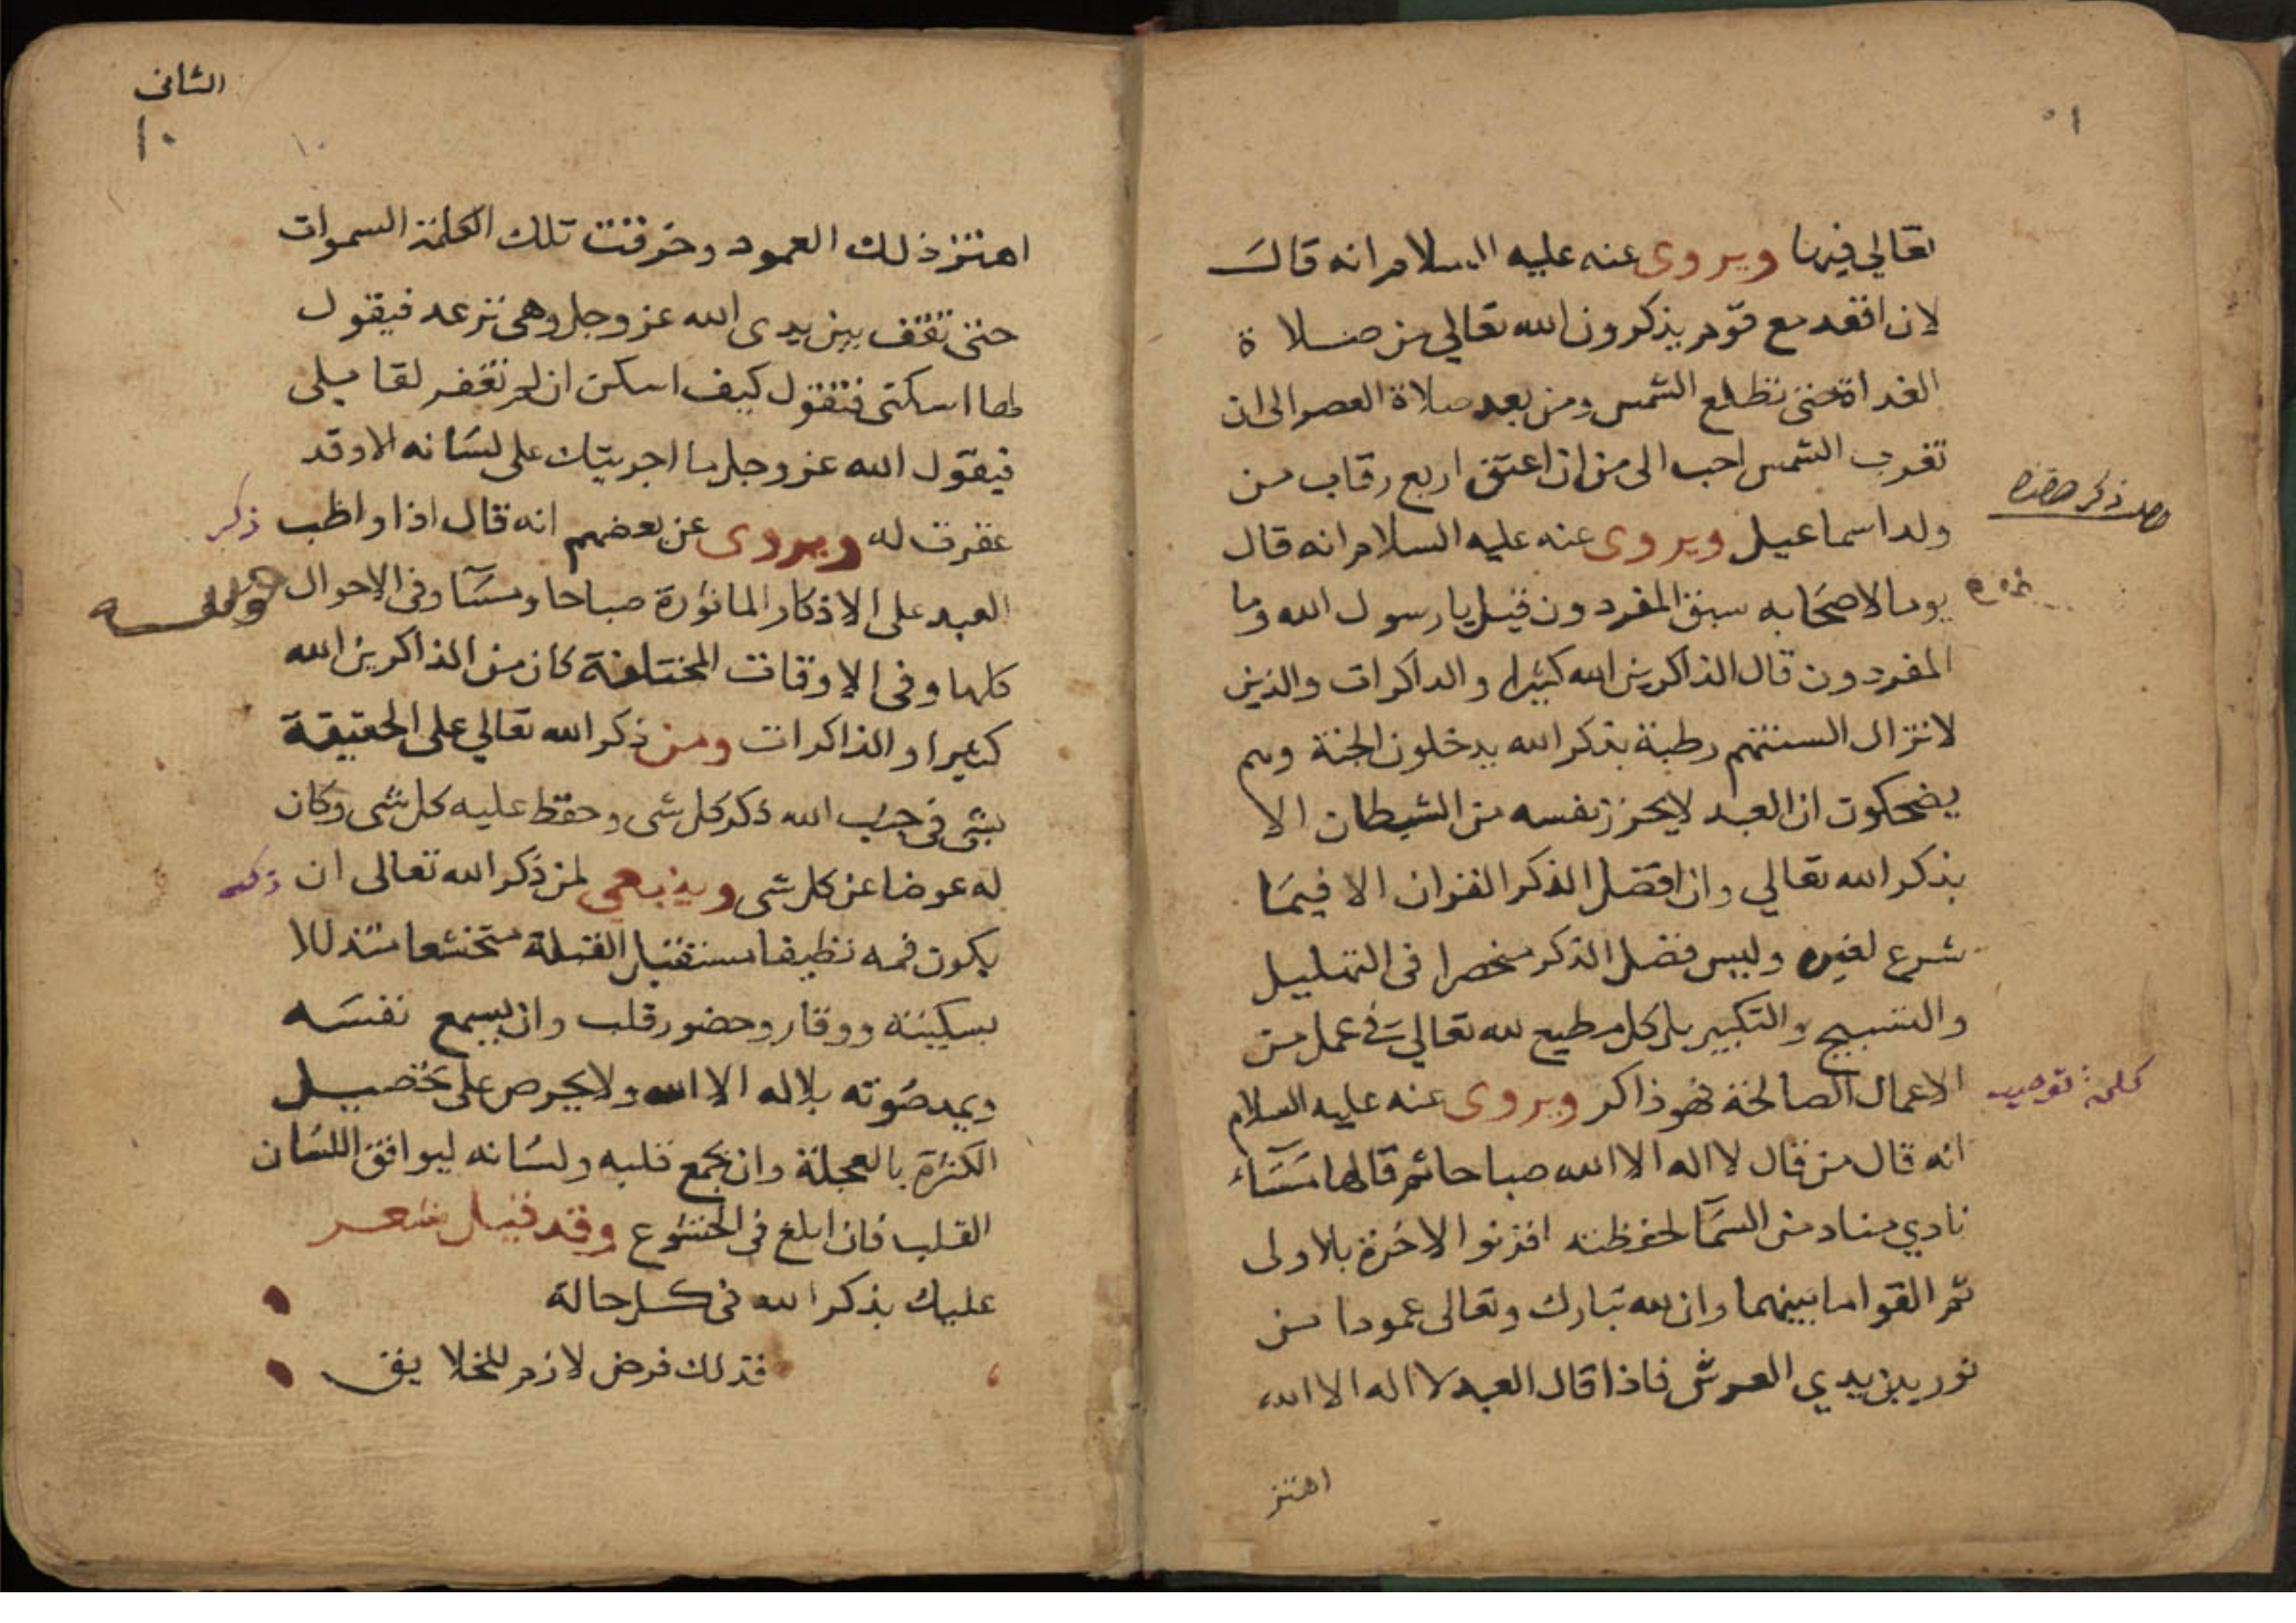 تعالي فيها ويروى عنه عليه السلام انه قال
لان اقعد مع قوم يذكرون الله تعالي من صلاة
الغداة حتى تطلع الشمس ومن بعد صلاة العصر الى ان
تغرب الشمس احب الى من ان اعتق اربع رقاب من
ولد اسماعيل ويروى عنه عليه السلام انه قال
يوما لاصحابه سبق المفردون قيل يا رسول الله وما
المفردون قال الذاكرين الله كثيرا والداكرات والذين
لا تزال السنتهم رطبة بذكر الله يدخلون الجنة وهم
يضحكون ان العبد لا يحرز نفسه من الشيطان الا
بذكر الله تعالي وان افضل الذكر القران الا فيما
شرع لغيره وليس فضل الذكر منحصرا فى التهليل
والتسبيح والتكبير بل كل مطيع لله تعالي فى عمل من
الاعمال الصالحة فهو ذاكر ويروى عنه عليه السلام
كلمة توحيد
انه قال من قال لا اله الا الله صباحا ثم قالها مساء
نادي مناد من السما لحفظته اقرنوا الاخرة بالاولى
ثم القوا ما بينهما وان لله تبارك وتعالى عمودا من
نور بين يدي العرش فاذا قال العبد لا اله الا الله
اهتز
الثانى
١٠
اهتز ذلك العمود وخرقت تلك الكلمة السموات
حتى تقف بين يدى الله عز وجل وهى ترعد فيقول
لها اسكنى فتقول كيف اسكن ان لم تغفر لقايلى
فيقول الله عز وجل ما اجريتك على لسانه الا وقد
غفرت له ويروى عن بعضهم انه قال اذا واظب
ذكر
العبد على الاذكار الماثورة صباحا ومسآ وفى الاحوال
كلها وفى الاوقات المختلفة كان من الذاكرين الله
كثيرا والذاكرات ومن ذكر الله تعالي على الحقيقة
نسى فى حب الله ذكر كل شى وحفظ عليه كل شى وكان
له عوضا عن كل شى وينبغى لمن ذكر الله تعالى ان
يكون فمه نظيفا مستقبل القبلة متخشعا متذللا
بسكينة ووقار وحضور قلب وان يسمع نفسه
ويمد صوته بلا اله الا الله ولا يحرص على تحصيل
الكثرة بالعجلة وان يجمع قلبه ولسانه ليوافق اللسان
القلب فان ابلغ فى الخشوع وقد قيل شعر
عليك بذكر الله فى كل حالة
فذلك فرض لازم للخلايق